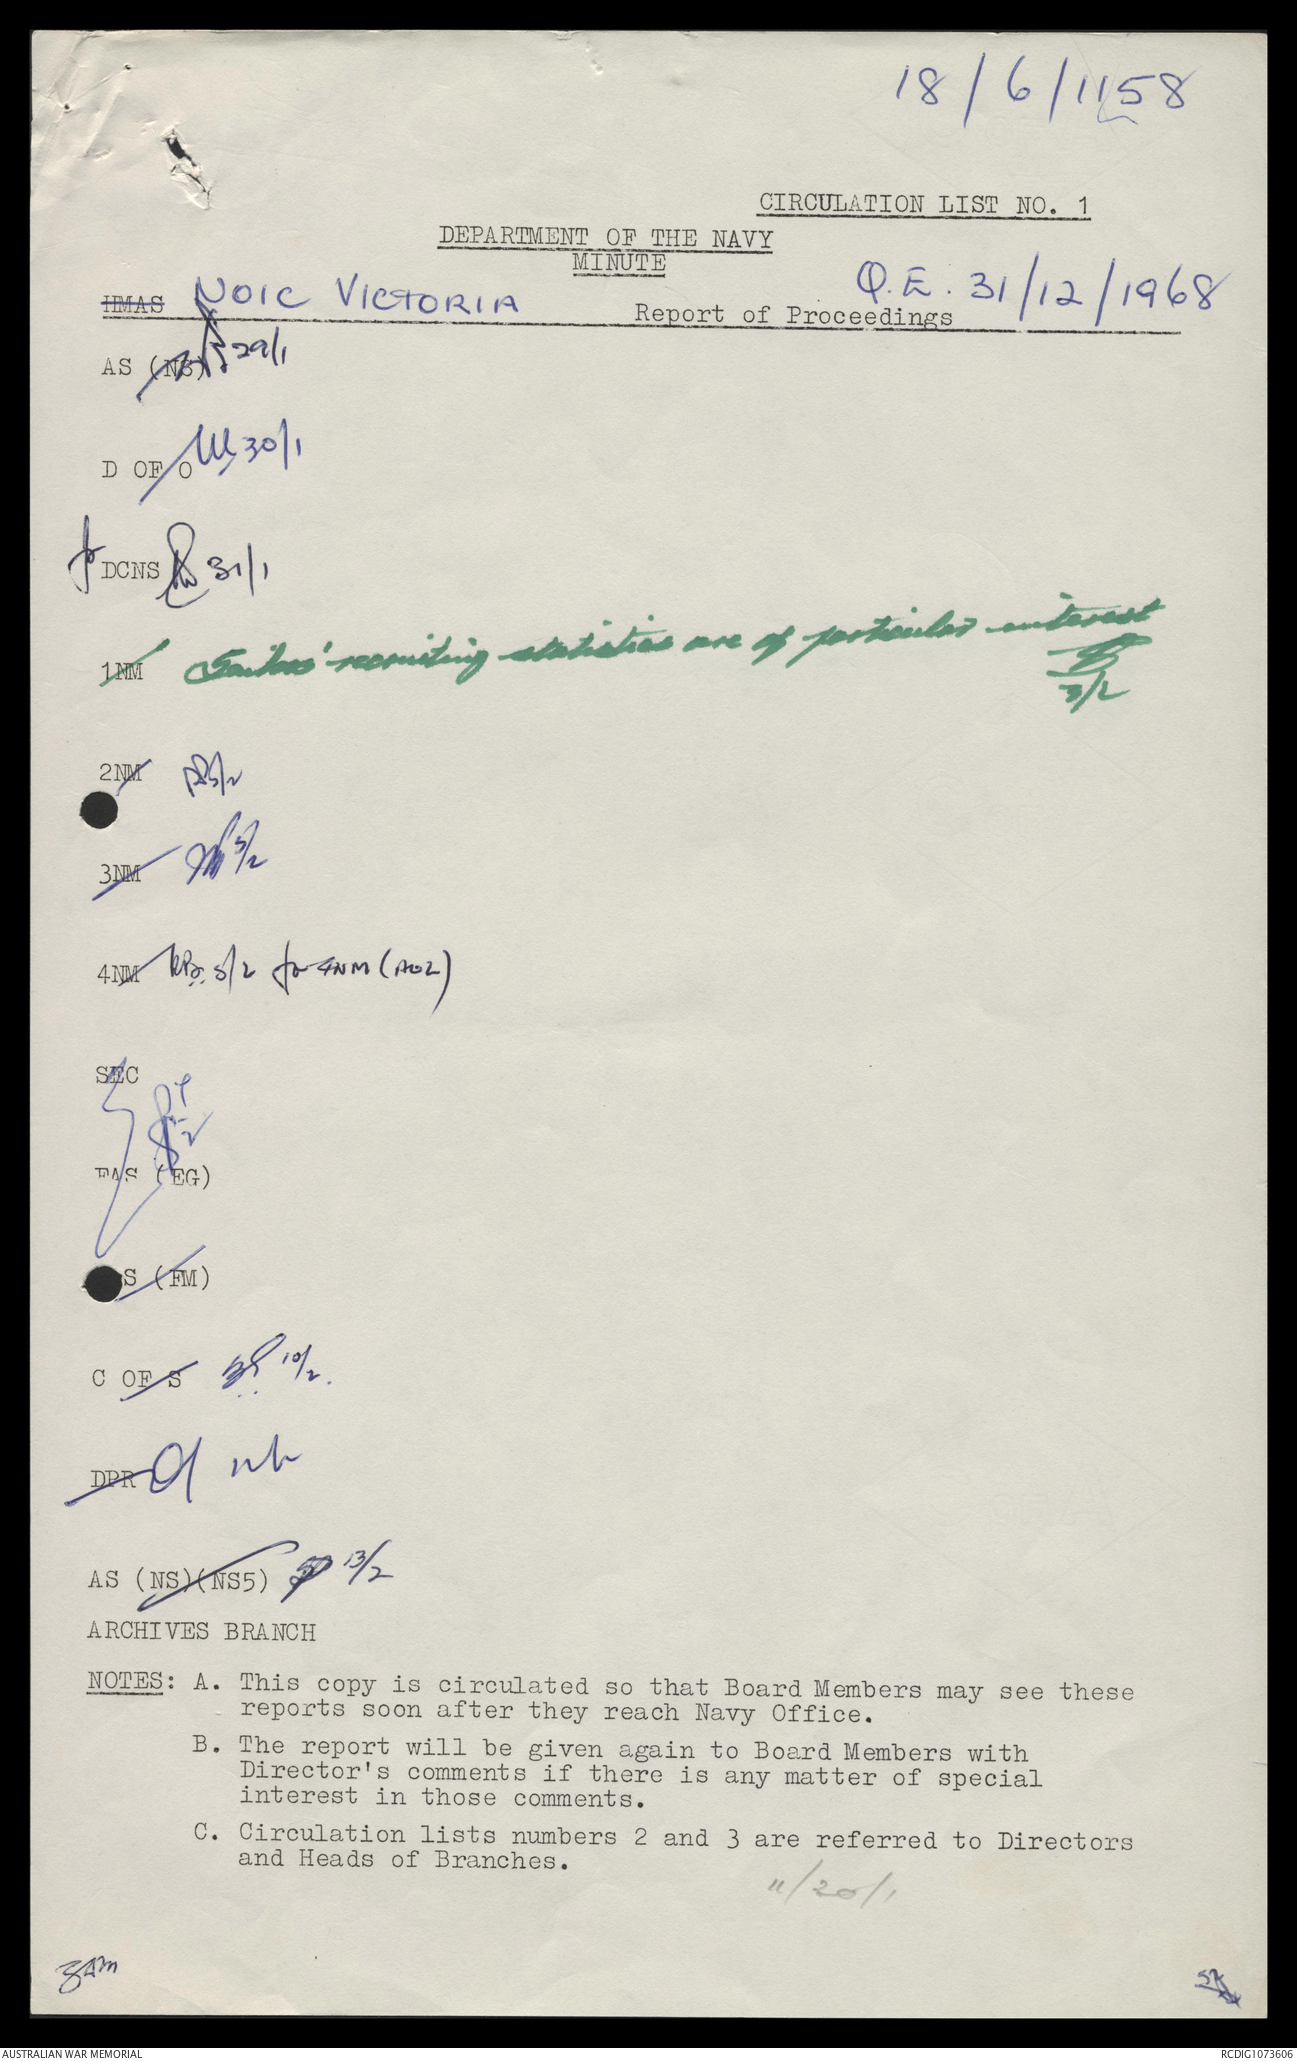 18/6/1158
CIRCULATION LIST NO. 1
DEPARTMENT OF THE NAVY
MINUTE
HMAS NOIC VICTORIA Report of Proceedings Q.E. 31/12/1968
AS (NS) 29/1
D OF O 30/1
for DCNS 31/1
1NM Sailors' recruiting statistics are of particular interest
3/2
2NM 5/2
3NM 5/2
4NM 5/2 for 4NM (AO2)
SEC
FAS (EG)
S (FM)
C OF S 10/2.
DPR
AS (NS)(NS5) 13/2
ARCHIVES BRANCH
NOTES: A. This copy is circulated so that Board Members may see these
reports soon after they reach Navy Office.
B. The report will be given again to Board Members with
Director's comments if there is any matter of special
interest in those comments.
C. Circulation lists numbers 2 and 3 are referred to Directors
and Heads of Branches.
11/20/1
AUSTRALIAN WAR MEMORIAL
RCDIG1073606